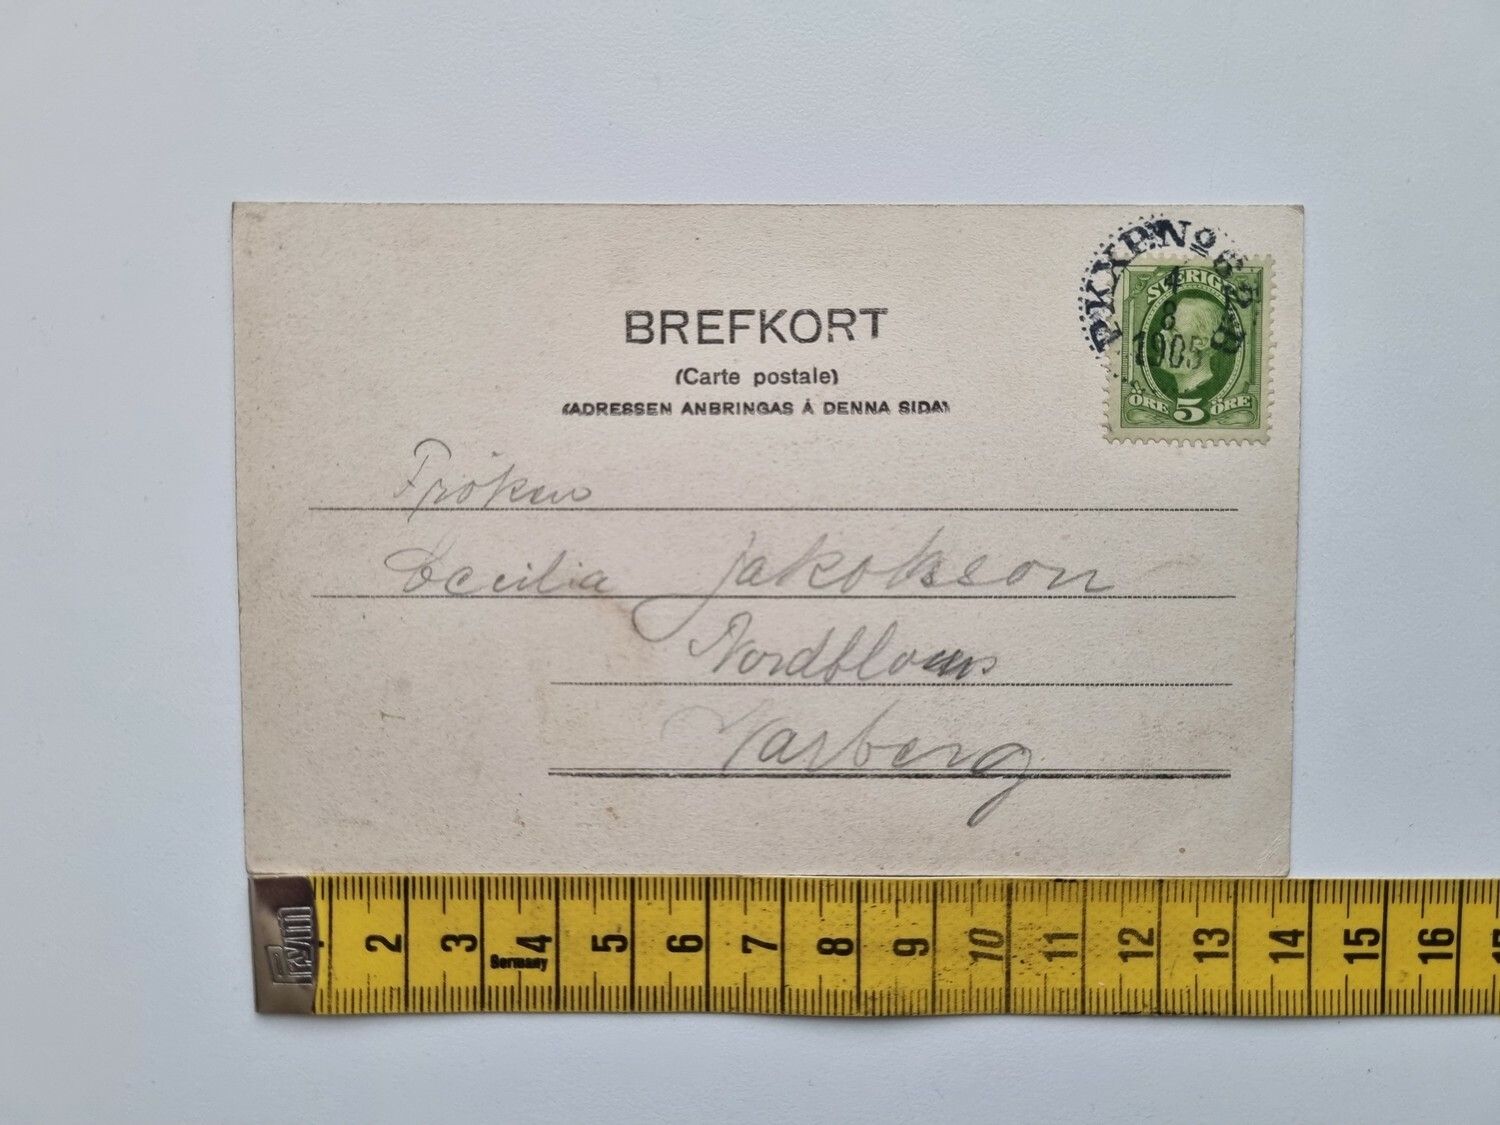 BREFKORT
(Carte postale)
(ADRESSEN ANBRINGAS Å DENNA SIDA)
PKXP. No
4
8
1905
SVERIGE
ÖRE 5 ÖRE
Fröken
Cecilia Jakobson
Nordbloms
Varberg
Prym
2 3 4 5 6 7 8 9 10 11 12 13 14 15 16
Germany